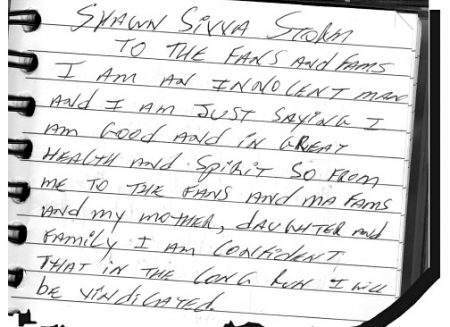 SHAWN SIVVA STORM
TO THE FANS AND FAMS
I AM AN INNOCENT MAN
AND I AM JUST SAYING I
AM GOOD AND IN GREAT
HEALTH AND SPIRIT SO FROM
ME TO THE FANS AND MA FAMS
AND MY MOTHER, DAUGHTER AND
FAMILY I AM CONFIDENT
THAT IN THE LONG RUN I WILL
BE VINDICATED.